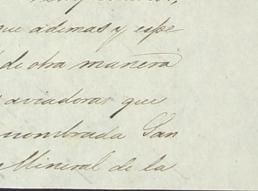 que ademas y espe
de otra manera
aviadoras que
nombrada San
Mineral de la